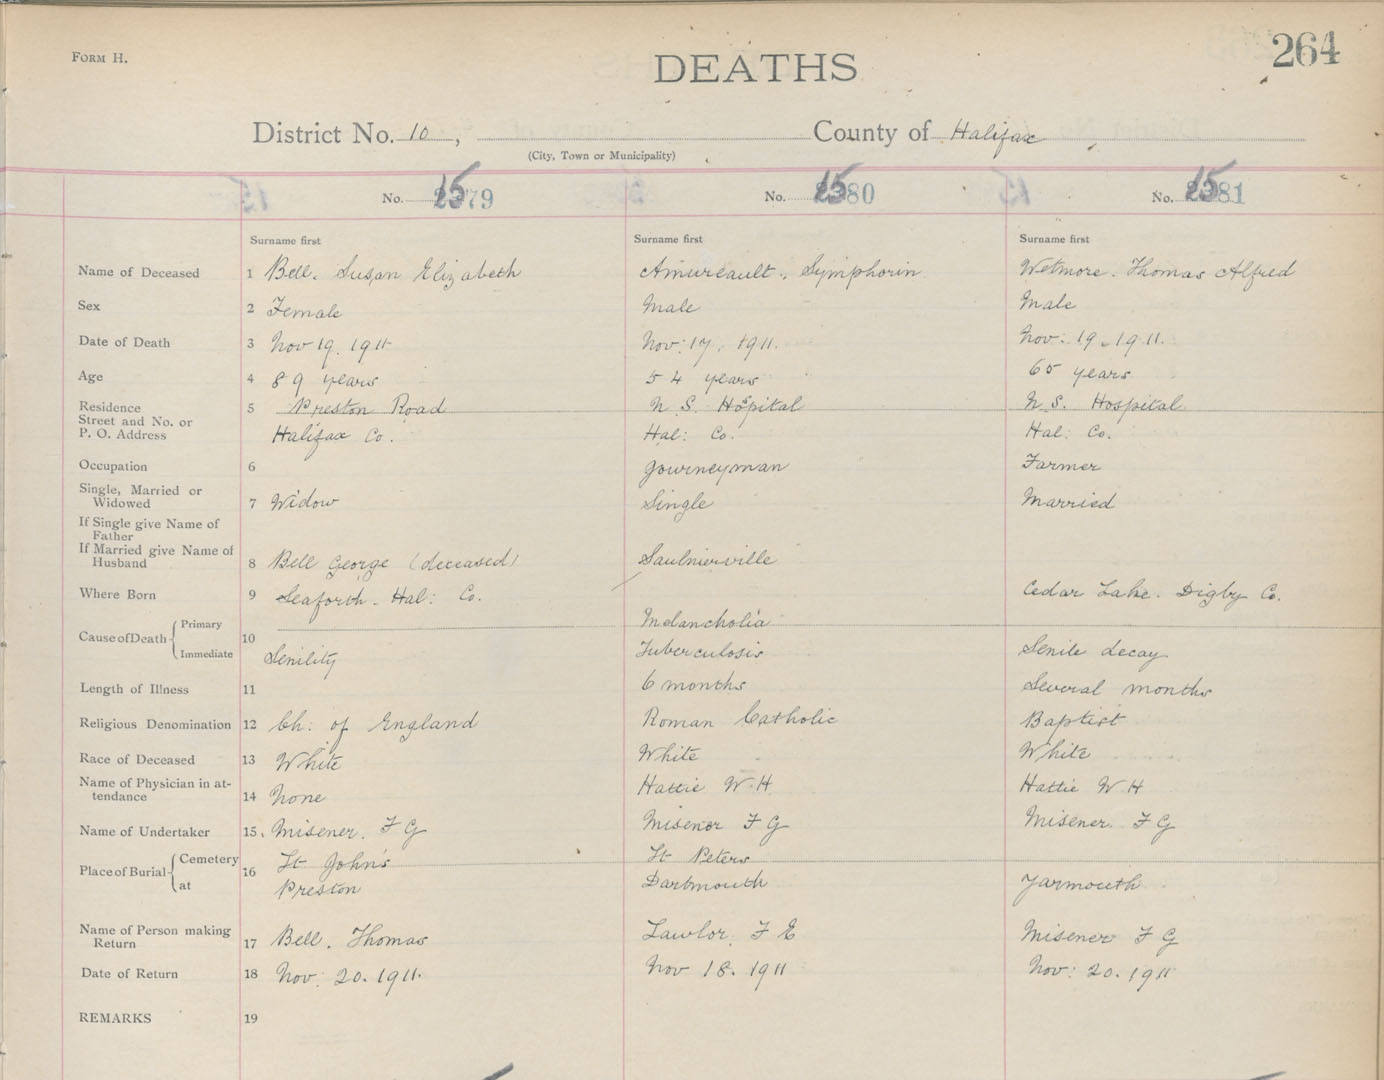 FORM H.
264
DEATHS
District No. 10, County of Halifax
(City, Town or Municipality)
No. 1579 No. 1580 No. 1581
Surname first Surname first Surname first
Name of Deceased 1 Bell. Susan Elizabeth Amureault., Symphorin Wetmore. Thomas Alfred
Sex 2 Female Male Male
Date of Death 3 Nov 19. 1911 Nov: 17, 1911. Nov: 19. 1911.
Age 4 89 years 54 years 65 years
Residence 5 Preston Road N. S. Hospital N. S. Hospital
Street and No. or
P. O. Address Halifax Co. Hal: Co. Hal: Co.
Occupation 6 Journeyman Farmer
Single, Married or
Widowed 7 Widow Single Married
If Single give Name of
Father
If Married give Name of
Husband 8 Bell George (deceased) Saulnierville
Where Born 9 Seaforth. Hal: Co. Cedar Lake. Digby Co.
Cause of Death Primary 10 Melancholia
Immediate Senility Tuberculosis Senile decay
Length of Illness 11 6 months Several months
Religious Denomination 12 Ch: of England Roman Catholic Baptist
Race of Deceased 13 White White White
Name of Physician in at-
tendance 14 None Hattie W. H. Hattie W H
Name of Undertaker 15. Misener. F G Misener F G Misener. F G
Place of Burial Cemetery 16 St John's St Peters
at Preston Dartmouth Yarmouth
Name of Person making
Return 17 Bell. Thomas Lawlor. F E Misener F G
Date of Return 18 Nov. 20. 1911. Nov 18. 1911 Nov: 20. 1911
REMARKS 19